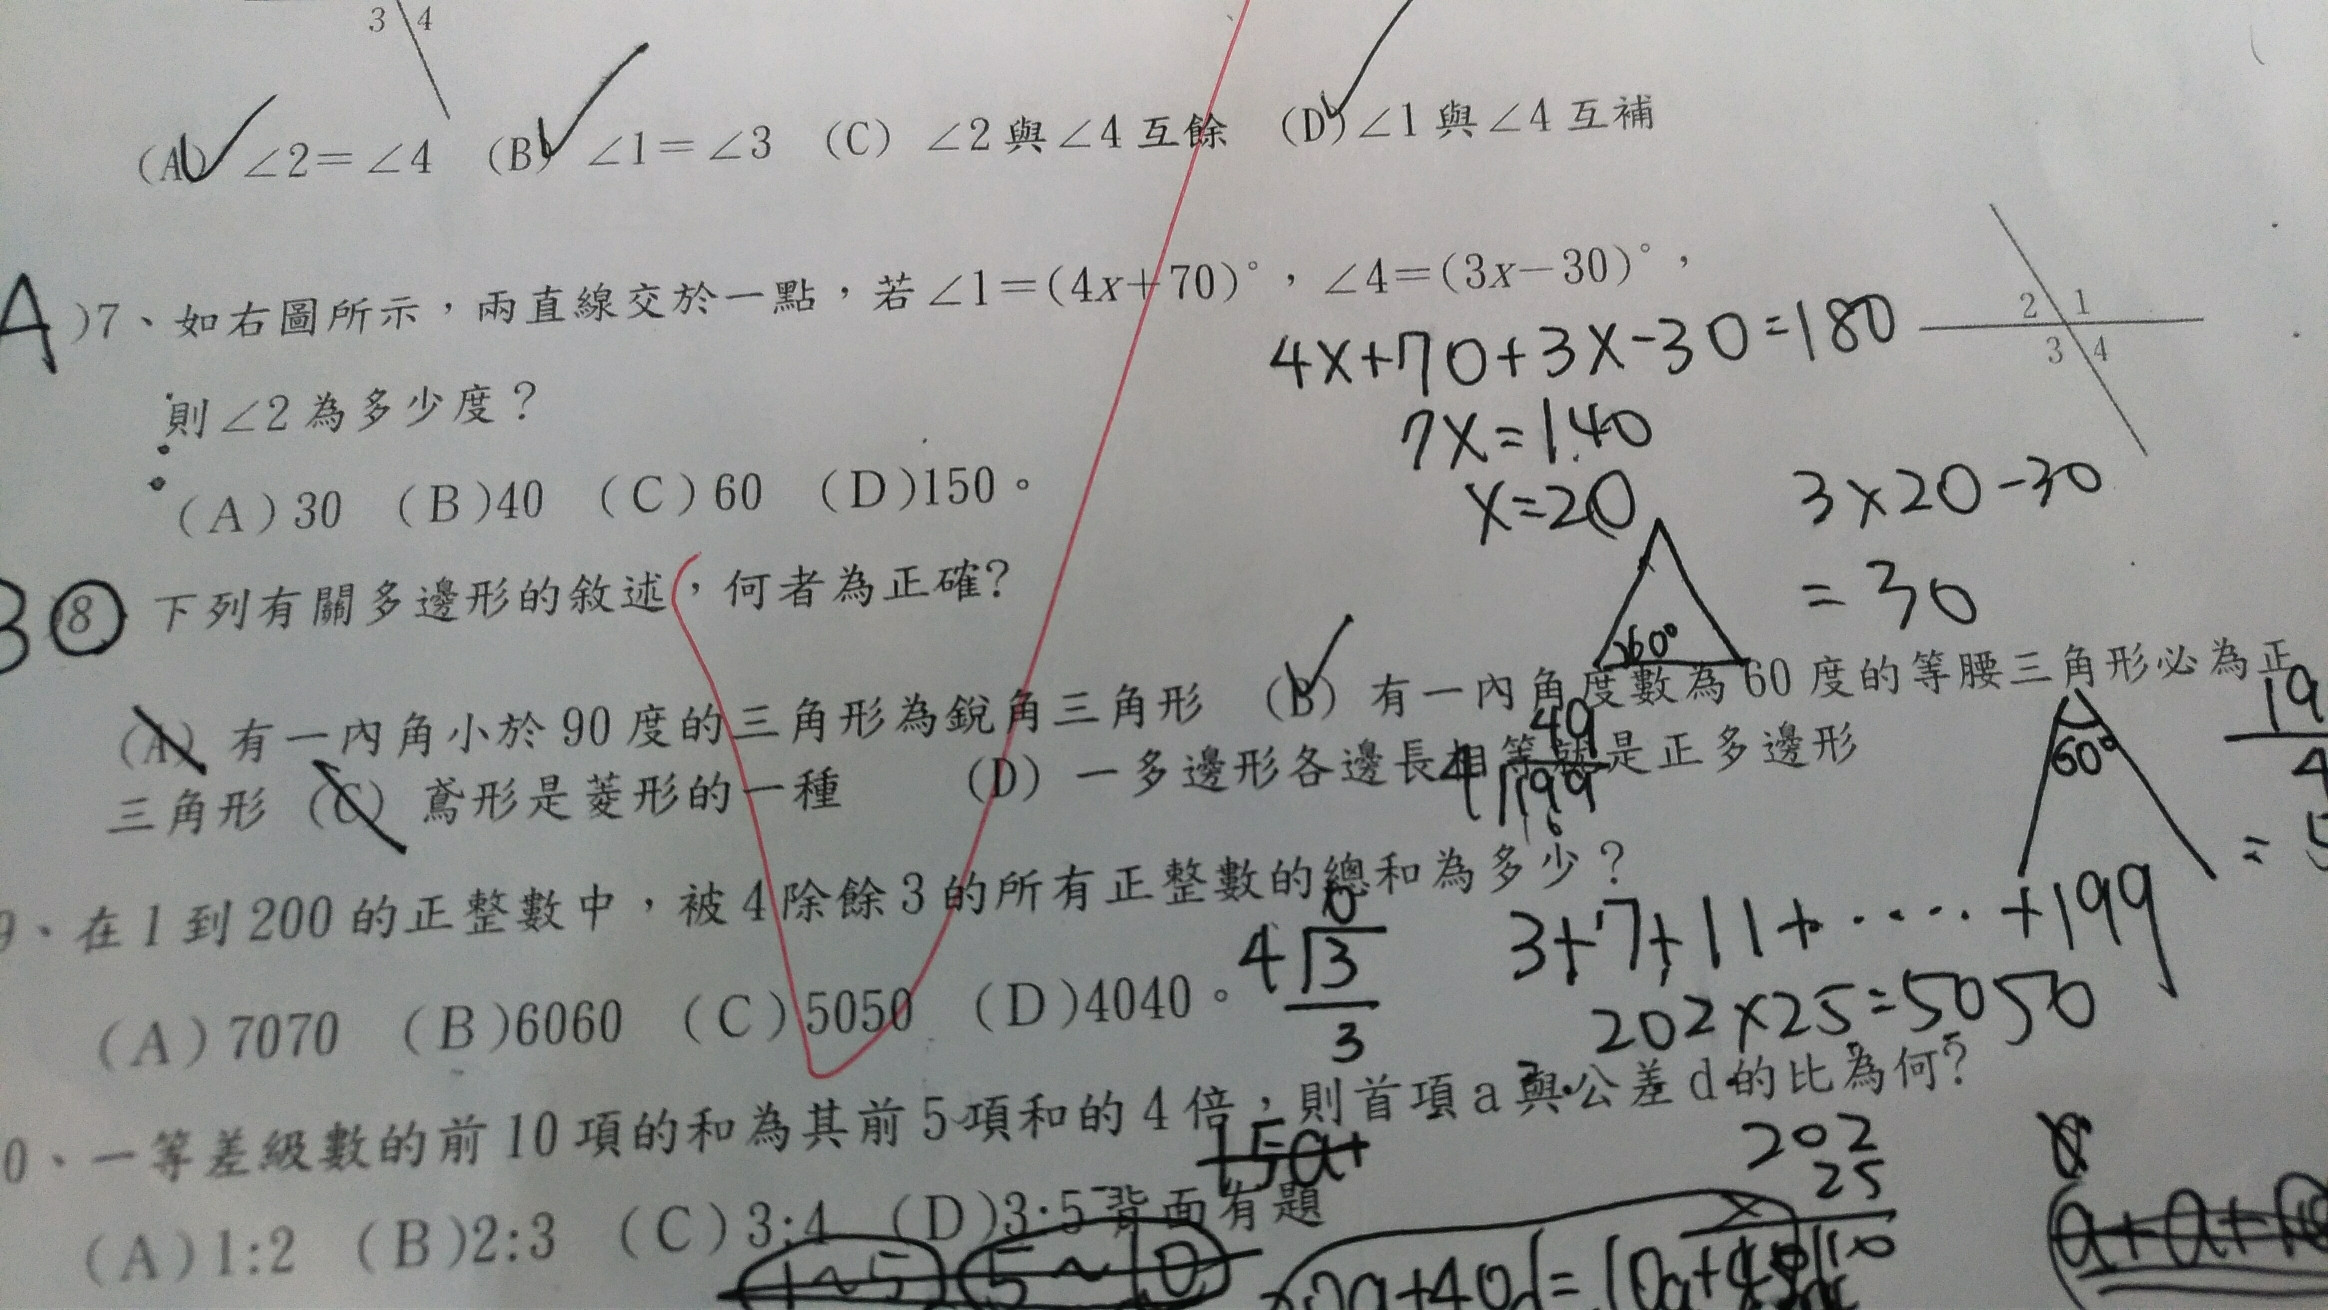 3 4
(A) ∠2=∠4 (B) ∠1=∠3 (C) ∠2與∠4互餘 (D) ∠1與∠4互補
A )7、如右圖所示，兩直線交於一點，若∠1=(4x+70)°，∠4=(3x-30)°，
2 1
3 4
4x+70+3x-30=180
則∠2為多少度？
7x=140
(A)30 (B)40 (C)60 (D)150。
x=20
3x20-30
=30
B 8 下列有關多邊形的敘述，何者為正確?
60°
(A) 有一內角小於90度的三角形為銳角三角形 (B) 有一內角度數為60度的等腰三角形必為正
三角形 (C) 鳶形是菱形的一種 (D) 一多邊形各邊長相等就是正多邊形
49
4 199
16
60°
19
4
=5
9、在1到200的正整數中，被4除餘3的所有正整數的總和為多少？
0
4 3
3
3+7+11+‧‧‧‧‧+199
(A)7070 (B)6060 (C)5050 (D)4040。
202x25=5050
0、一等差級數的前10項的和為其前5項和的4倍，則首項a與公差d的比為何?
15a+
202
25
(A)1:2 (B)2:3 (C)3:4 (D)3:5 背面有題
1~5 5~10
a+40d=10a+
a+a+